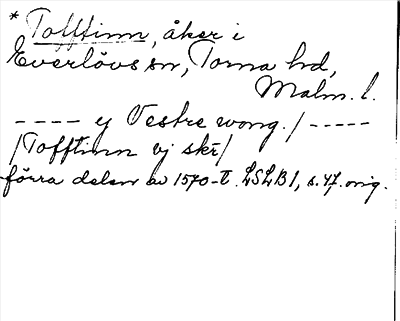 * Tofftinn, åker i
Everlövs sn, Torna hd,
Malm. l.
---- ej Vestre wong. / -----
/ Tofftinn ej skr /
förra delen av 1570-t. LSLB 1, s. 47. orig.